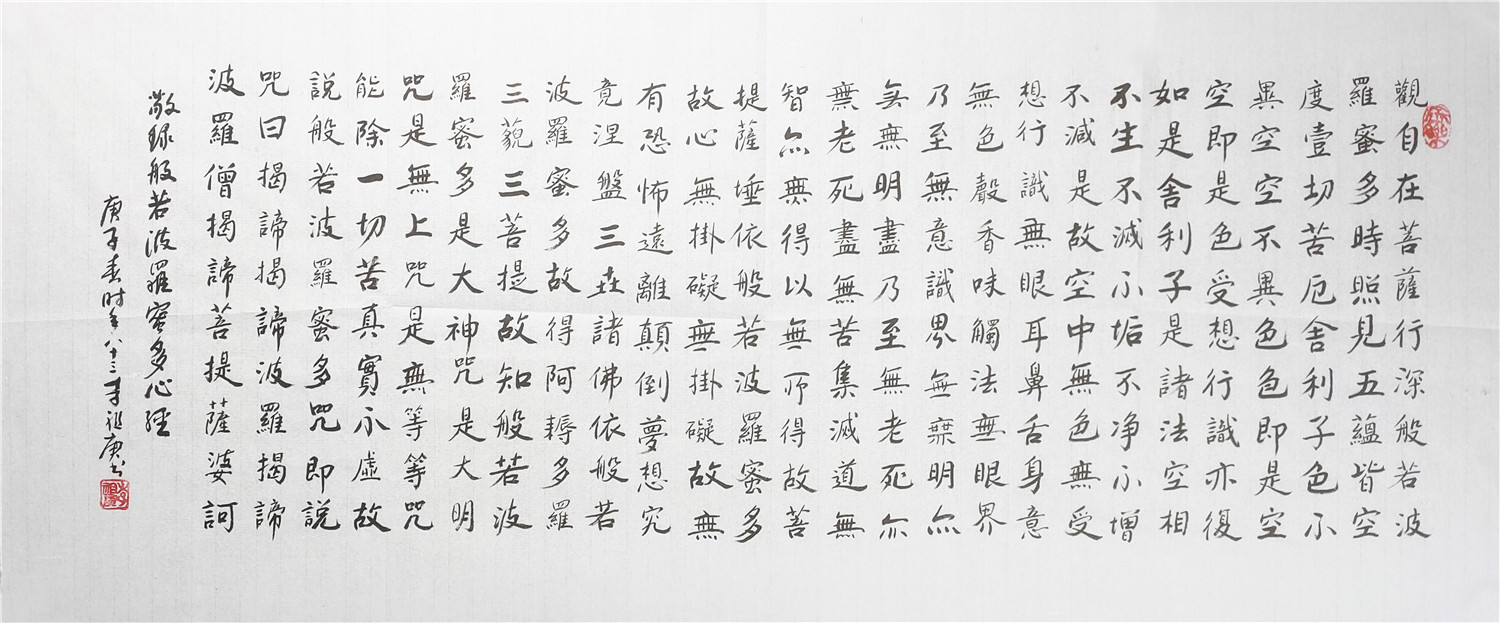 觀自在菩薩行深般若波
羅蜜多時照見五蘊皆空
度壹切苦厄舍利子色不
異空空不異色色即是空
空即是色受想行識亦復
如是舍利子是諸法空相
不生不滅不垢不净不增
不減是故空中無色無受
想行識無眼耳鼻舌身意
無色聲香味觸法無眼界
乃至無意識界無無明亦
無無明盡乃至無老死亦
無老死盡無苦集滅道無
智亦無得以無所得故菩
提薩埵依般若波羅蜜多
故心無掛礙無掛礙故無
有恐怖遠離顛倒夢想究
竟涅盤三世諸佛依般若
波羅蜜多故得阿耨多羅
三藐三菩提故知般若波
羅蜜多是大神咒是大明
咒是無上咒是無等等咒
能除一切苦真實不虛故
説般若波羅蜜多咒即説
咒曰揭諦揭諦波羅揭諦
波羅僧揭諦菩提薩婆訶
敬録般若波羅蜜多心經
庚子春时年八十三李祖庚书